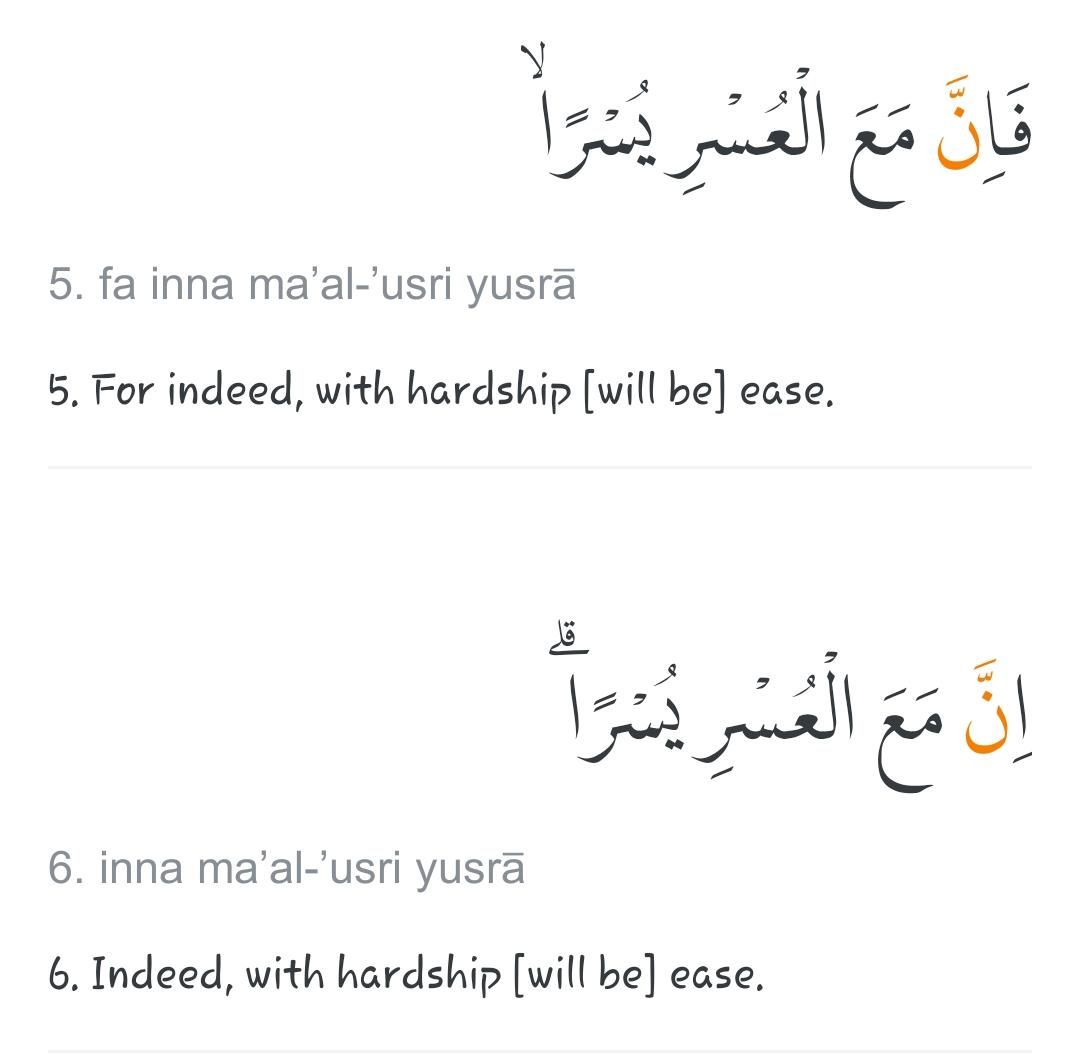 فَاِنَّ مَعَ الْعُسْرِ يُسْرًاۙ
5. fa inna ma’al-’usri yusrā
5. For indeed, with hardship [will be] ease.
اِنَّ مَعَ الْعُسْرِ يُسْرًاۗ
6. inna ma’al-’usri yusrā
6. Indeed, with hardship [will be] ease.